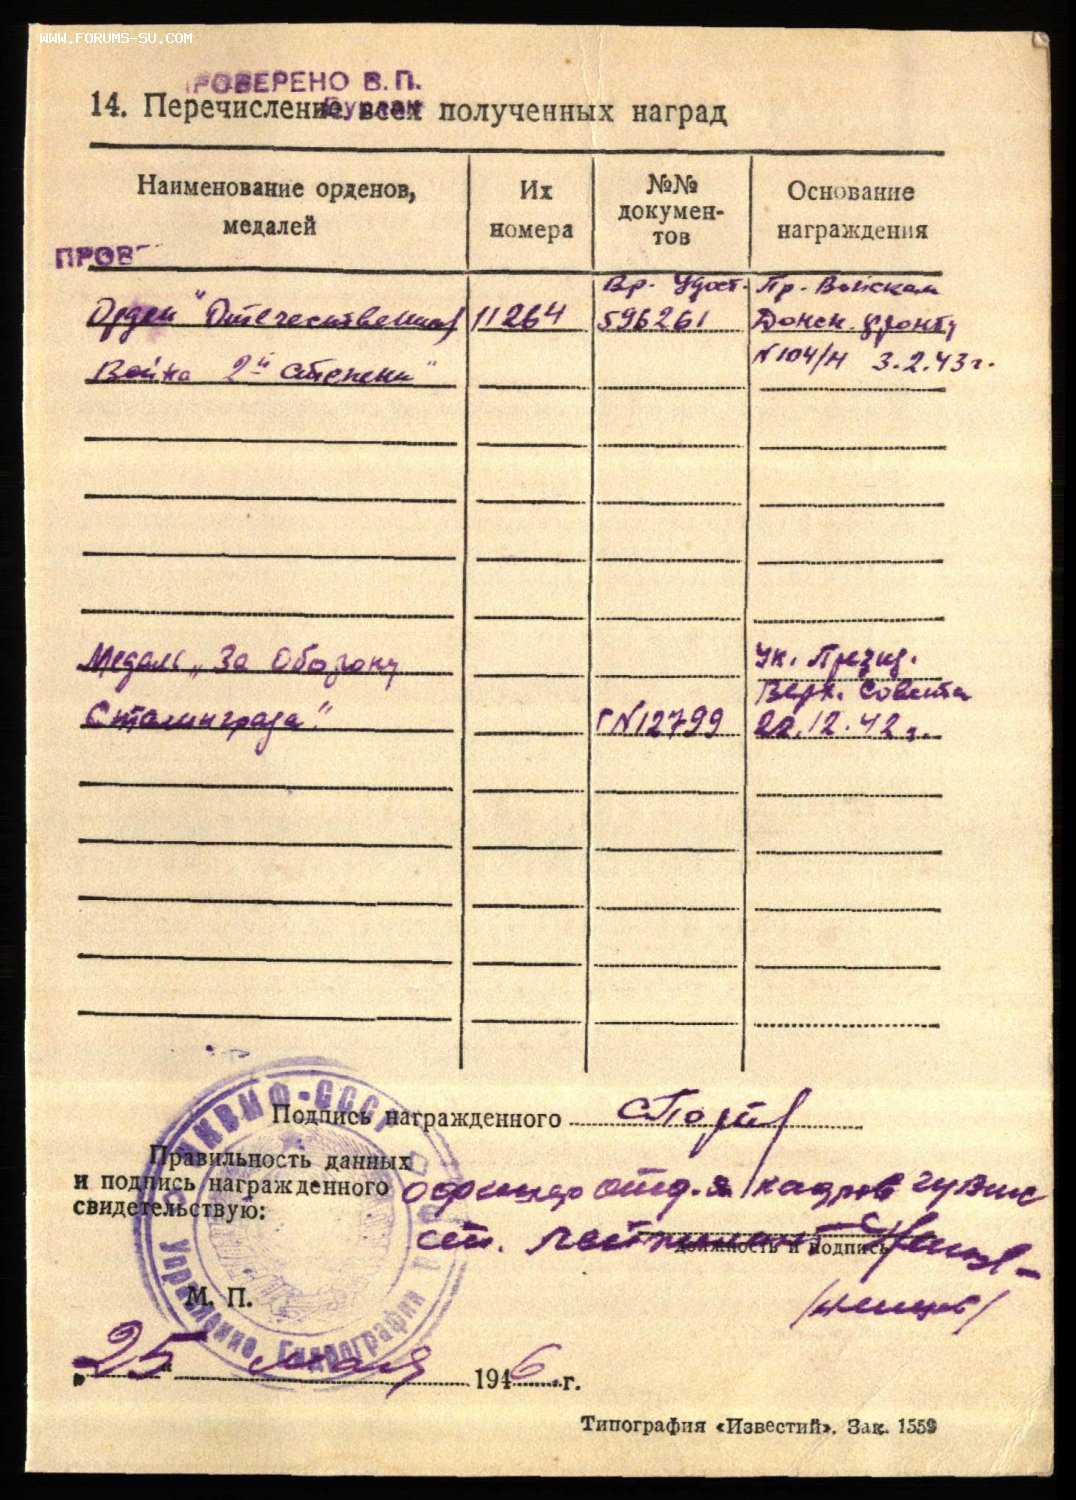 WWW.FORUMS-SU.COM
ПРОВЕРЕНО В.П.
14. Перечисление всех полученных наград
Наименование орденов, медалей
Их номера
№№ докумен-тов
Основание награждения
ПРОВ
Орден "Отечественная
Война 2й степени"
11264
Вр. Удост.
596261
Пр. Войскам
Донск. фронту
N 104/н 3.2.43г.
Медаль "За Оборону
Сталинграда".
ГN12799
Ук. Презид.
Верх. Совета
22.12.42г.
Подпись награжденного
Правильность данных
и подпись награжденного
свидетельствую:
Офицер отд-я кадров
ст. лейтенант
должность и подпись
/Немцов/
М. П.
НКВМФ-СССР
Управление Гидрографии
„25" мая 1946 г.
Типография «Известий». Зак. 1559